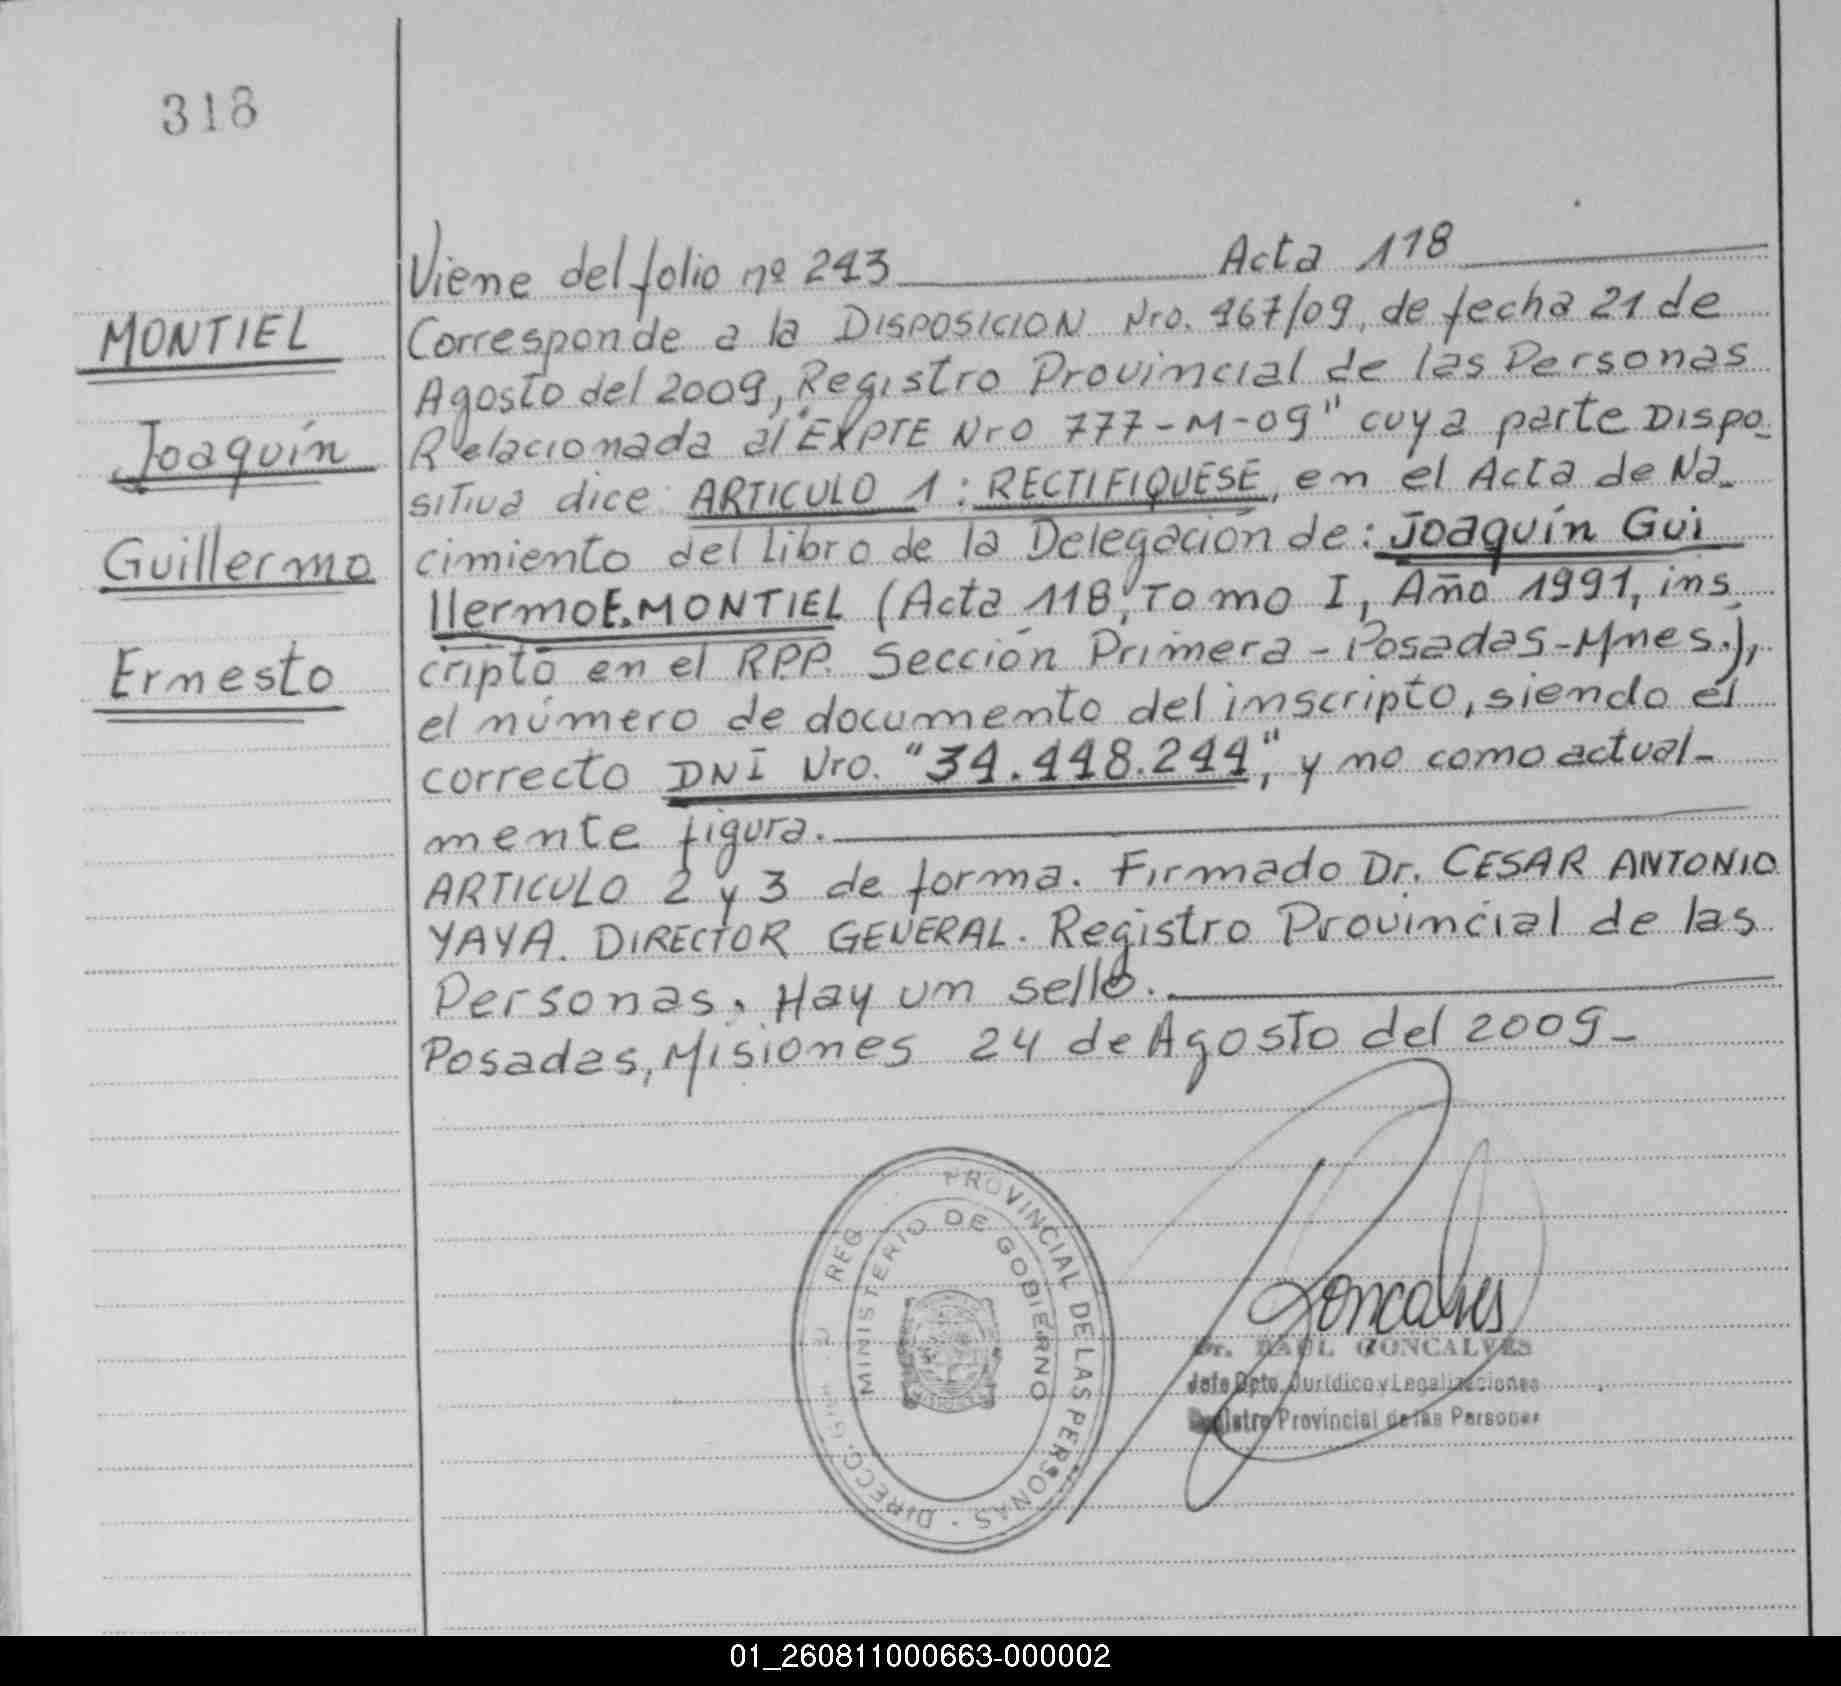 318
Viene del folio nº 243 Acta 118
MONTIEL
Joaquín
Guillermo
Ernesto
Corresponde a la DISPOSICION Nro. 467/09, de fecha 21 de
Agosto del 2009, Registro Provincial de las Personas
Relacionada al "EXPTE Nro 777-M-09" cuya parte Dispo-
sitiva dice: ARTICULO 1: RECTIFIQUESE, en el Acta de Na-
cimiento del Libro de la Delegación de: Joaquín Gui
llermo E. MONTIEL (Acta 118, Tomo I, Año 1991, ins
cripto en el RPP. Sección Primera - Posadas - Mnes.),
el número de documento del inscripto, siendo el
correcto DNI Nro. "34.448.244", y no como actual-
mente figura.
ARTICULO 2 y 3 de forma. Firmado Dr. CESAR ANTONIO
YAYA. DIRECTOR GENERAL. Registro Provincial de las
Personas. Hay un sello.
Posadas, Misiones 24 de Agosto del 2009-
DIRECC. REG PROVINCIAL DE LAS PERSONAS
MINISTERIO DE GOBIERNO
Goncalves
Dr. RAUL GONCALVES
Jefe Dpto. Jurídico y Legalizaciones
Registro Provincial de las Personas
01_260811000663-000002